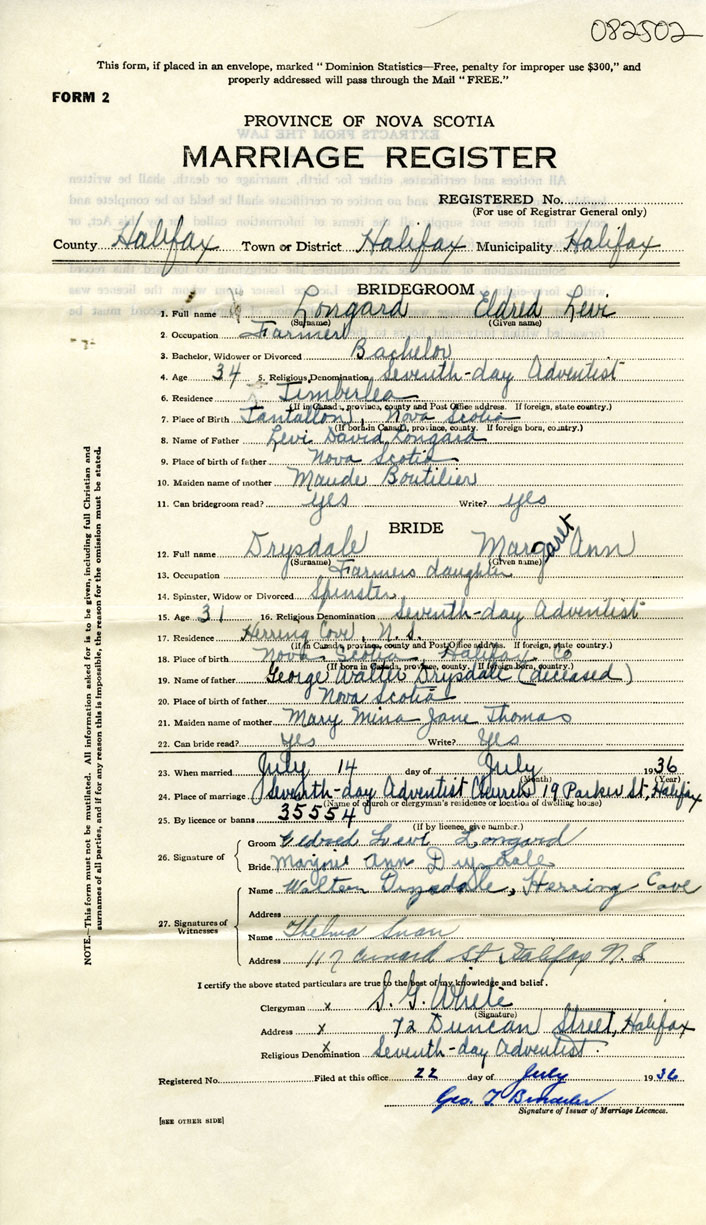 082502
This form, if placed in an envelope, marked "Dominion Statistics—Free, penalty for improper use $300," and
properly addressed will pass through the Mail "FREE."
FORM 2
PROVINCE OF NOVA SCOTIA
MARRIAGE REGISTER
REGISTERED No.
(For use of Registrar General only)
County Halifax Town or District Halifax Municipality Halifax
BRIDEGROOM
1. Full name Longard Eldred Levi
(Surname) (Given name)
2. Occupation Farmer
3. Bachelor, Widower or Divorced Bachelor
4. Age 34 5. Religious Denomination Seventh-day Adventist
6. Residence Timberlea
(If in Canada, province, county and Post Office address. If foreign, state country.)
7. Place of Birth Tantallon Nova Scotia
(If born in Canada, province, county. If foreign born, country.)
8. Name of Father Levi David Longard
9. Place of birth of father Nova Scotia
10. Maiden name of mother Maude Boutilier
11. Can bridegroom read? yes Write? yes
BRIDE
12. Full name Drysdale Margaret Ann
(Surname) (Given name)
13. Occupation Farmers daughter
14. Spinster, Widow or Divorced Spinster
15. Age 31 16. Religious Denomination Seventh-day Adventist
17. Residence Herring Cove, N.S.
(If in Canada, province, county and Post Office address. If foreign, state country.)
18. Place of birth Nova Scotia Halifax Co
(If born in Canada, province, county. If foreign born, country.)
19. Name of father George Walter Drysdale (deceased)
20. Place of birth of father Nova Scotia
21. Maiden name of mother Mary Mina Jane Thomas
22. Can bride read? Yes Write? Yes
23. When married July 14 day of July 1936
(Month) (Year)
24. Place of marriage Seventh-day Adventist Church 19 Parker St, Halifax
(Name of church or clergyman's residence or location of dwelling house)
25. By licence or banns 35554
(If by licence, give number.)
26. Signature of Groom Eldred Levi Longard
Bride Marjorie Ann Drysdale
27. Signatures of Witnesses
Name Walter Drysdale, Herring Cove
Address
Name Thelma
Address 117 St Halifax N.S
I certify the above stated particulars are true to the best of my knowledge and belief.
Clergyman x S. G. White
(Signature)
Address x 72 Duncan Street, Halifax
Religious Denomination x Seventh-day Adventist.
Registered No. Filed at this office 22 day of July 1936
Geo. T.
Signature of Issuer of Marriage Licences.
[SEE OTHER SIDE]
NOTE.—This form must not be mutilated. All information asked for is to be given, including full Christian and
surnames of all parties, and if for any reason this is impossible, the reason for the omission must be stated.